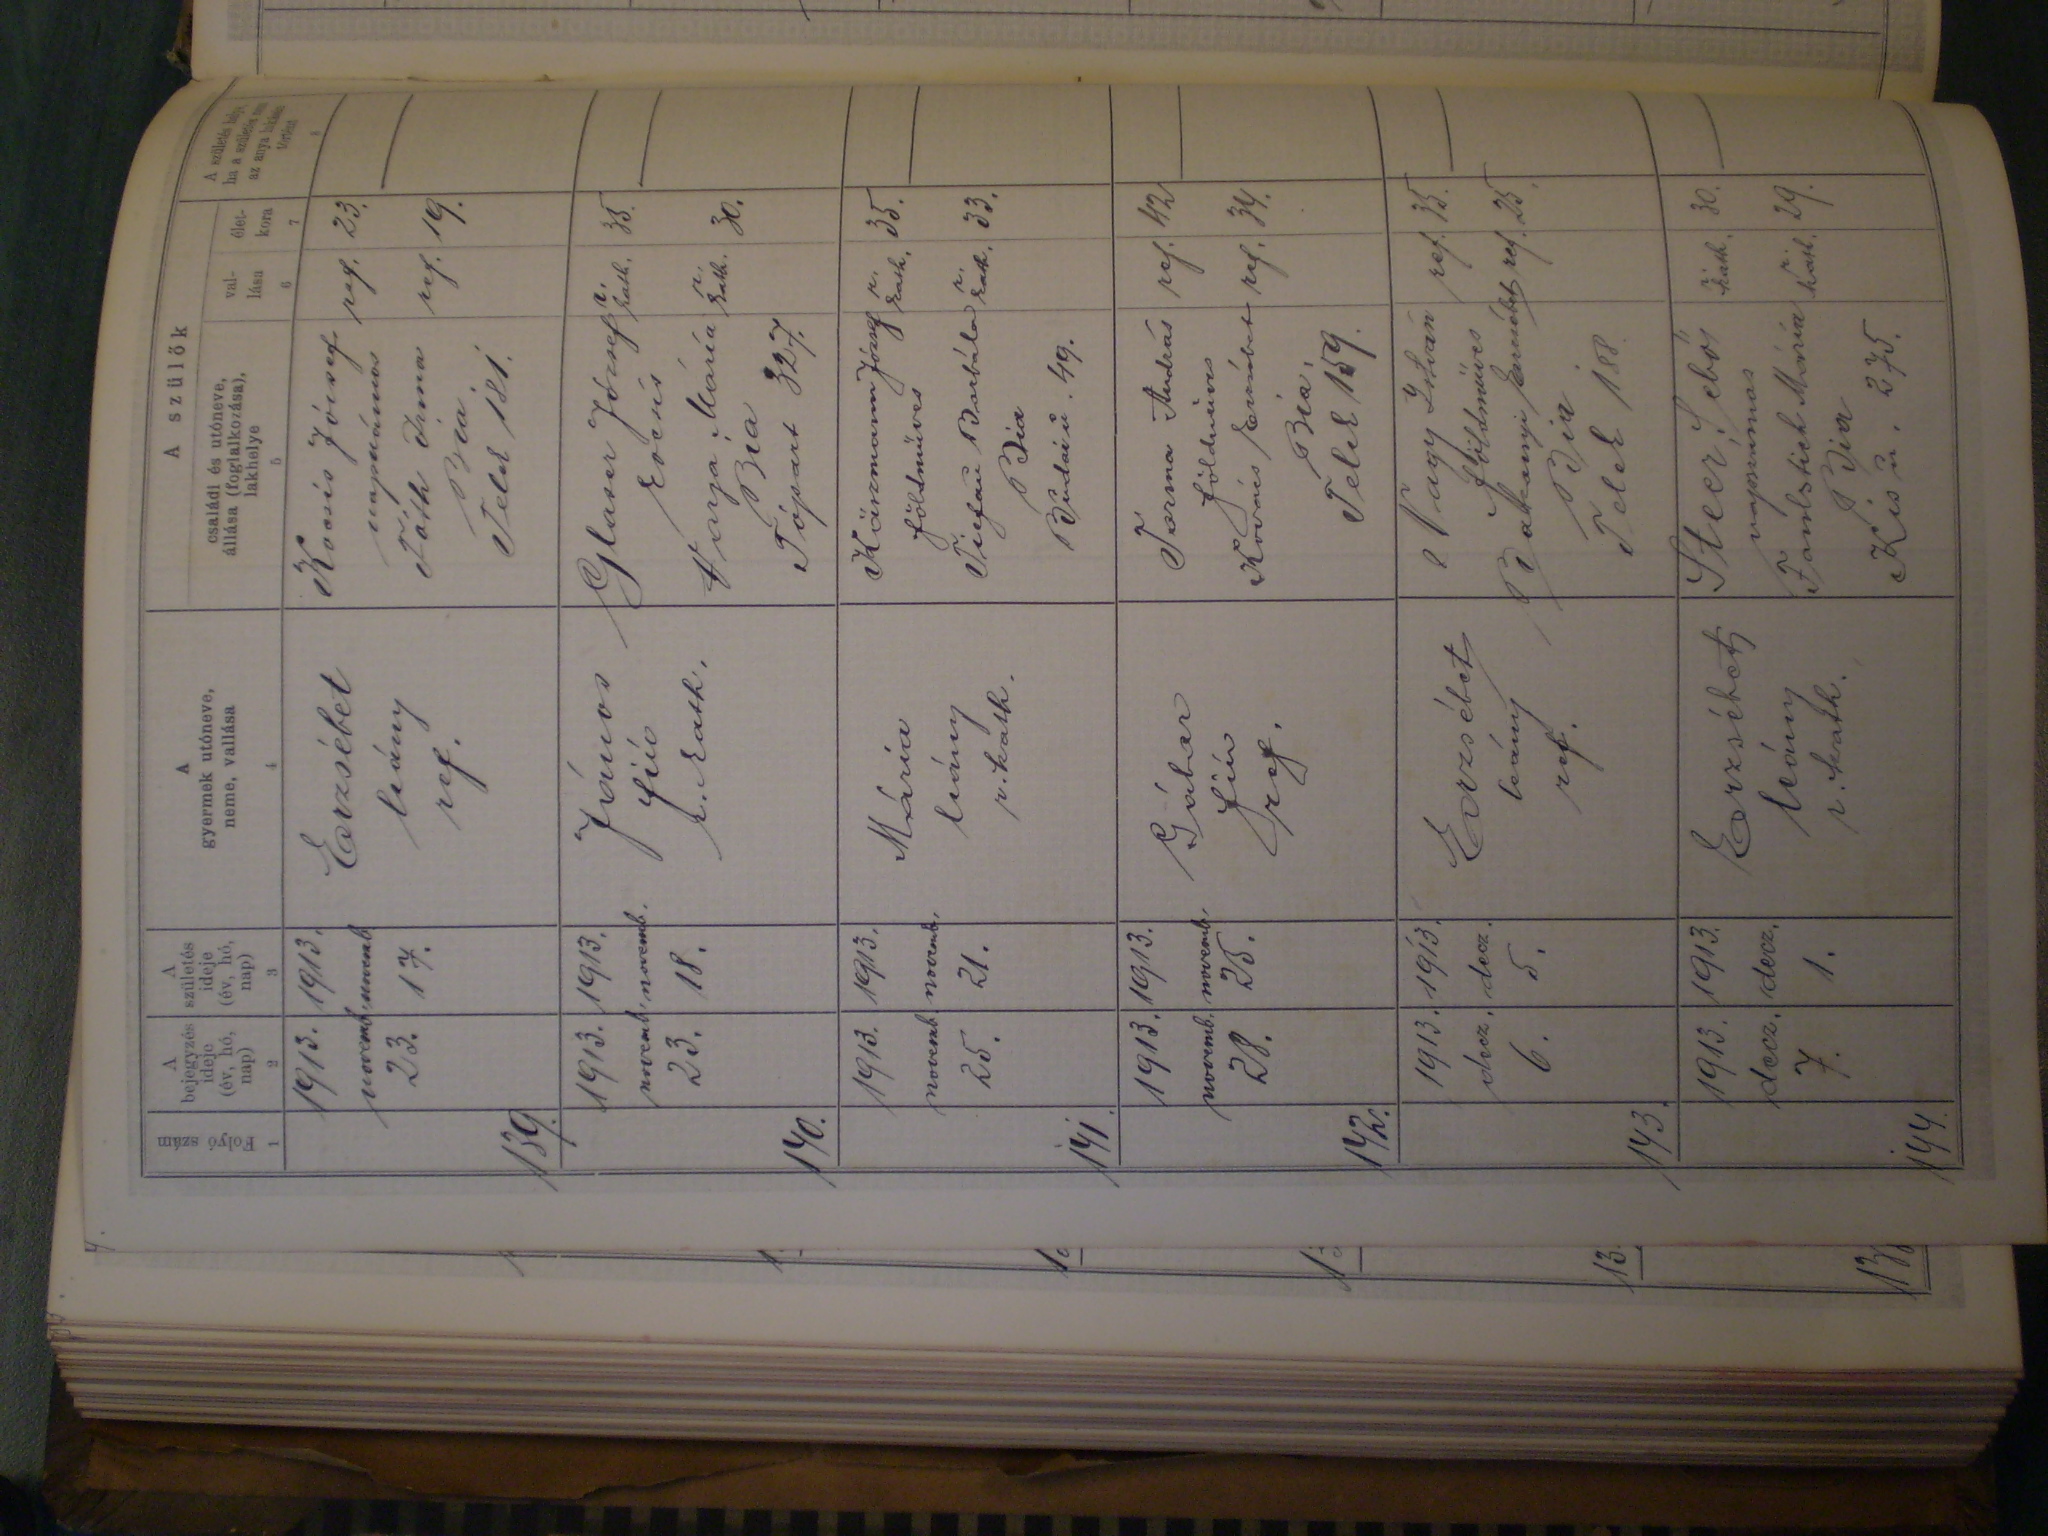 A szülők
Folyó szám
A bejegyzés ideje (év, hó, nap)
A születés ideje (év, hó, nap)
A gyermek utóneve, neme, vallása
családi és utóneve, állása (foglalkozása), lakhelye
vallása
életkora
A születés helye, ha a születés nem az anya lakásán történt
1 2 3 4 5 6 7 8
139.
1913. novemb. 23.
1913. novemb. 17.
Erzsébet
leány
ref.
Kocsis József ref. 23.
napszámos
Tóth Irma ref. 19.
Bia
Telek 181.
140.
1913. novemb. 23.
1913. novemb. 18.
János
fiú
r. kath.
Glaser József r. kath. 35.
kocsis
Varga Mária r. kath. 30.
Bia
Tópart 327.
141.
1913. novemb. 25.
1913. novemb. 21.
Mária
leány
r. kath.
József r. kath. 35.
földműves
Borbála r. kath. 33.
Bia
Budai u. 49.
142.
1913. novemb. 28.
1913. novemb. 25.
Gábor
fiú
ref.
Torma András ref. 42
földműves
Kovács Erzsébet ref. 34.
Bia,
Telek 159.
143.
1913. decz. 6.
1913. decz. 5.
Erzsébet
leány
ref.
Nagy István ref. 35.
földműves
Bakonyi Erzsébet ref. 25.
Bia
Telek 188.
144.
1913. decz. 7.
1913. decz. 1.
Erzsébet
leány
r. kath.
r. kath. 30.
napszamos
Mária r. kath. 29.
Bia
Kis u. 275.